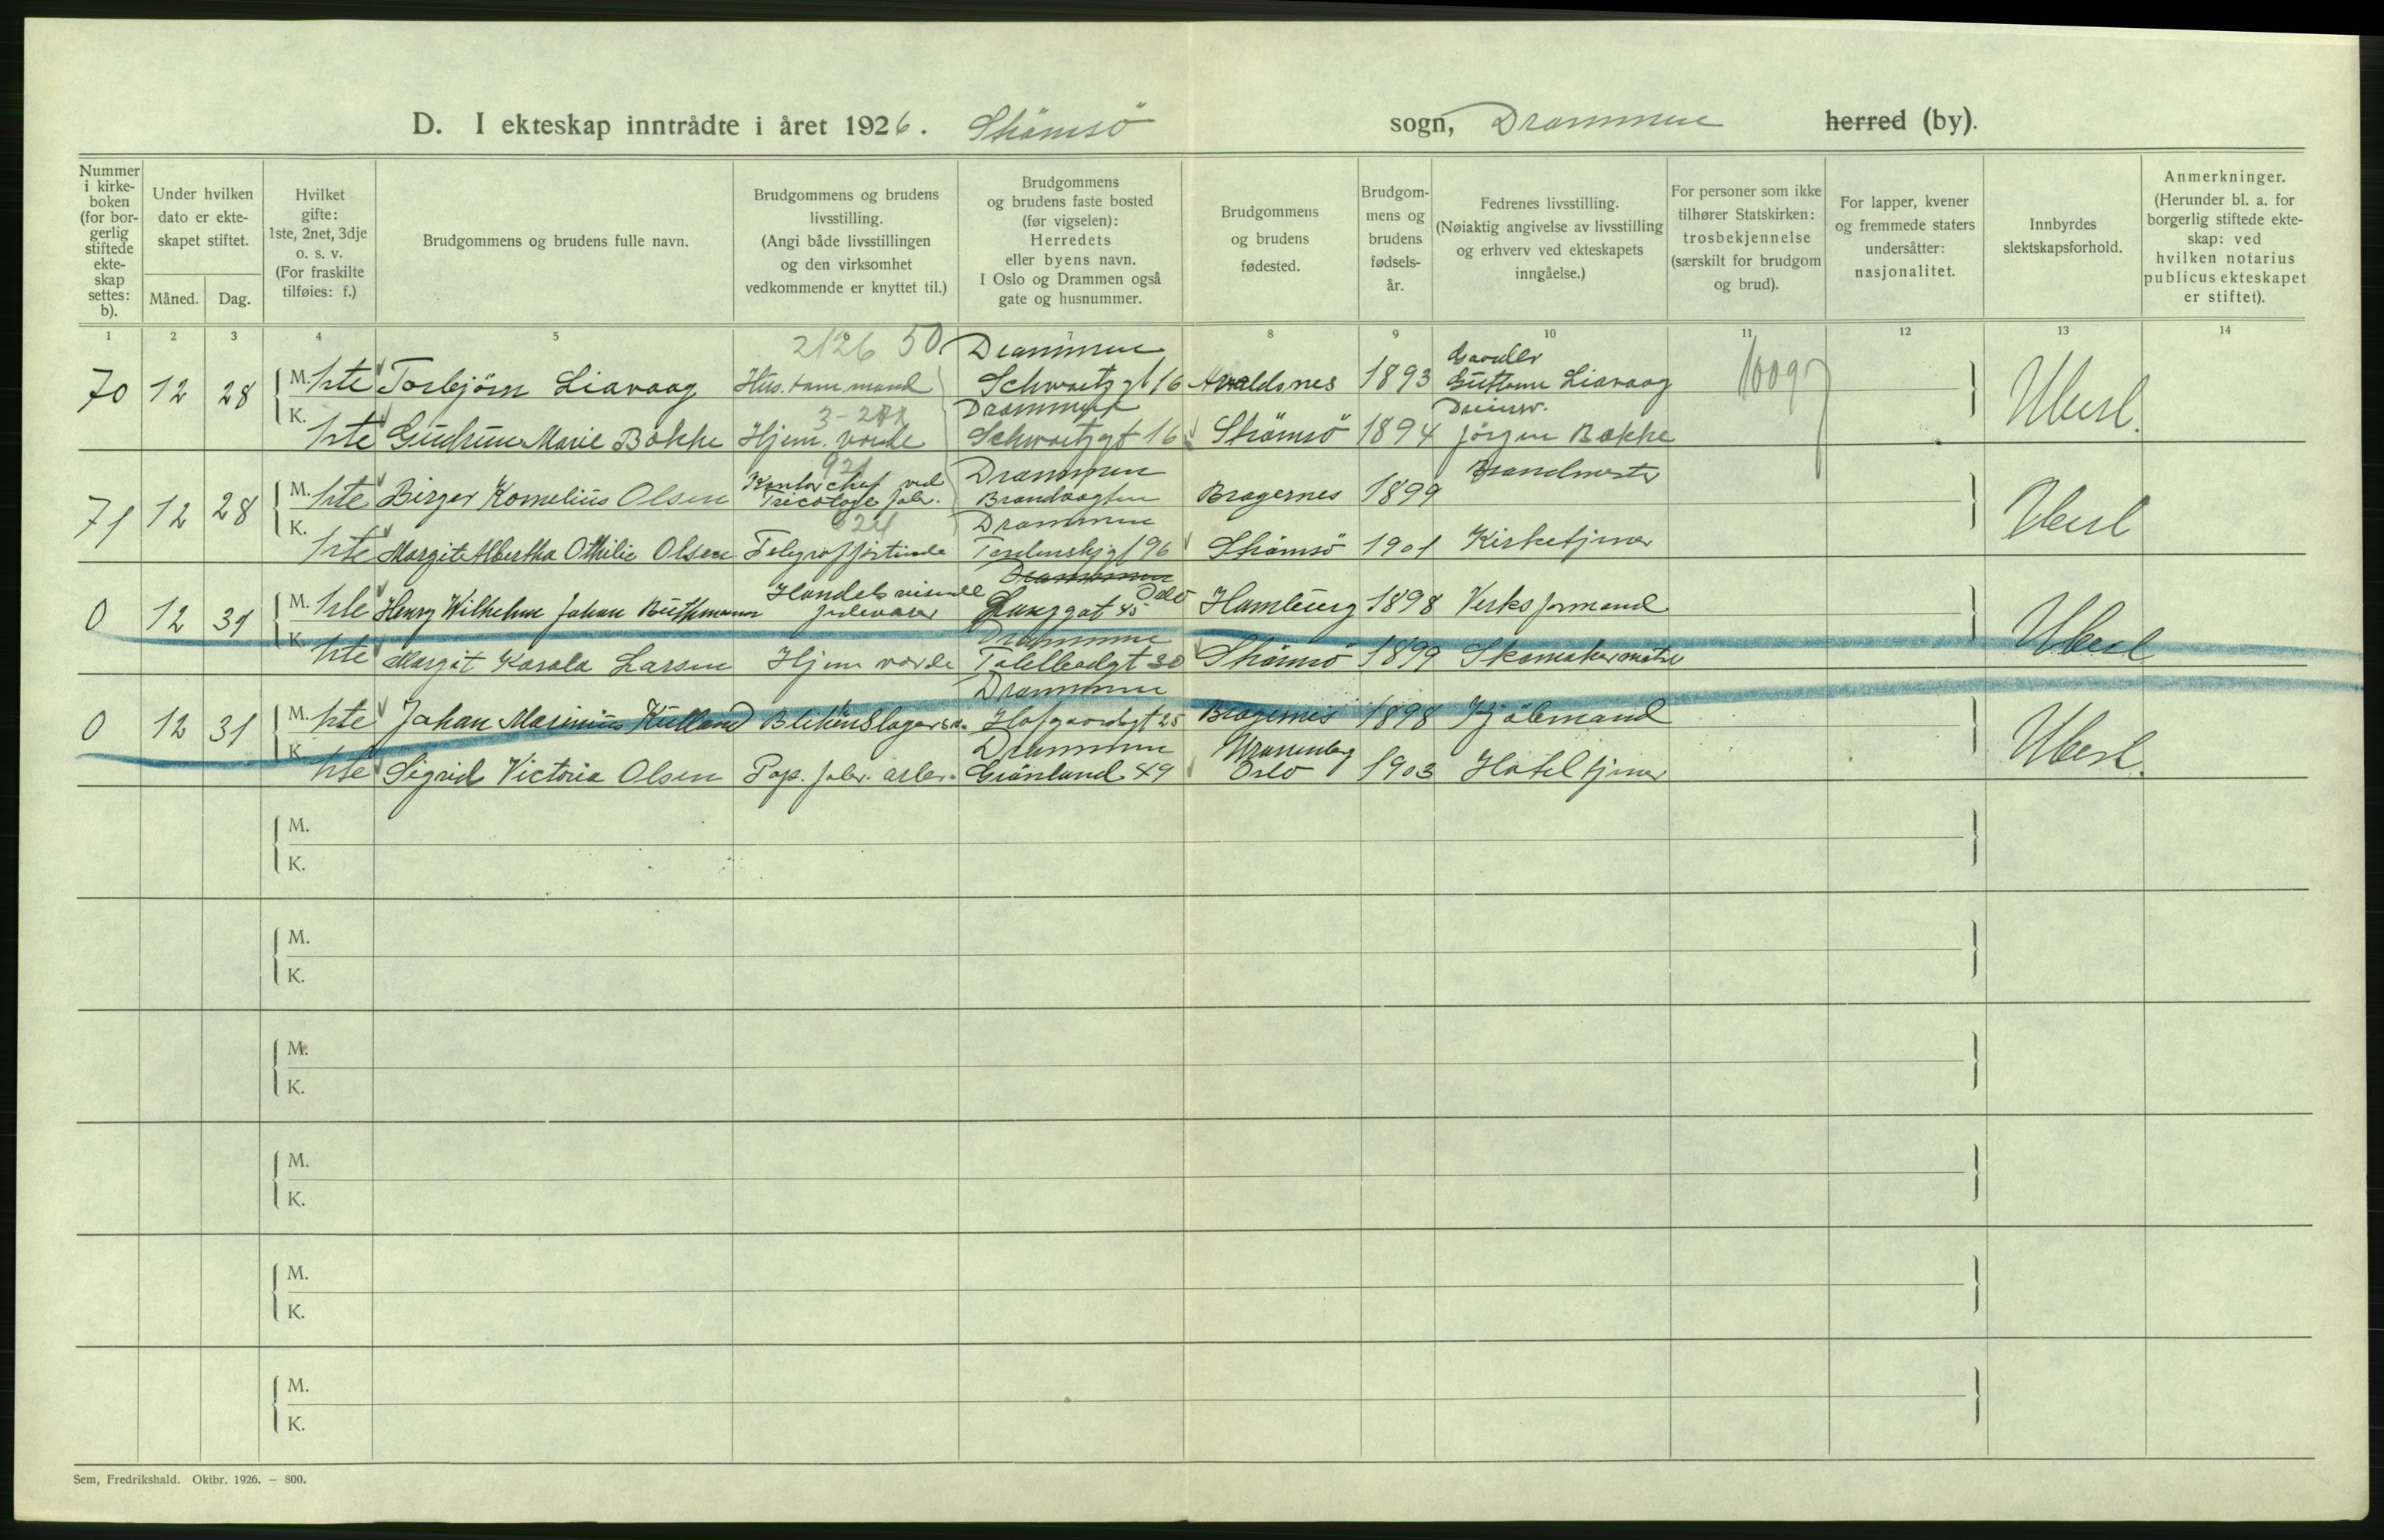 D. I ekteskap inntrådte i året 1926. Strömsö sogn, Drammen herred (by).
Nummer i kirke- boken (for bor- gerlig stiftede ekte- skap settes: b).
Under hvilken dato er ekte- skapet stiftet.
Måned. Dag.
Hvilket gifte: 1ste, 2net, 3dje o. s. v. (For fraskilte tilføies: f.)
Brudgommens og brudens fulle navn.
Brudgommens og brudens livsstilling. (Angi både livsstillingen og den virksomhet vedkommende er knyttet til.)
Brudgommens og brudens faste bosted (før vigselen): Herredets eller byens navn. I Oslo og Drammen også gate og husnummer.
Brudgommens og brudens fødested.
Brudgom- mens og brudens fødsels- år.
Fedrenes livsstilling. (Nøiaktig angivelse av livsstilling og erhverv ved ekteskapets inngåelse.)
For personer som ikke tilhører Statskirken: trosbekjennelse (særskilt for brudgom og brud).
For lapper, kvener og fremmede staters undersåtter: nasjonalitet.
Innbyrdes slektskapsforhold.
Anmerkninger. (Herunder bl. a. for borgerlig stiftede ekte- skap: ved hvilken notarius publicus ekteskapet er stiftet).
1 2 3 4 5 7 8 9 10 11 12 13 14
2126 50 Drammen
70 12 28 M. 1ste Torbjörn Liavaag mand Schwartzgt 16 Avaldsnes 1893 Liavaag Ubesl.
Drammen
K. 1ste Gudrun Marie Bakke Hjem. værde Schwartzgt 16 Strömsö 1894 Jörgen Bakke
921 Drammen Brandmester
71 12 28 M. 1ste Birger Kornelius Olsen Kontorchef ved Tricotage fabr. Brandvagten Bragernes 1899 Ubesl
624 Drammen
K. 1ste Margit Albertha Othilie Olsen Telegrafistinde 96 Strömsö 1901 Kirketjener
Drammen Oslo
0 12 31 M. 1ste Henry Wilhelm Johan Buthmann Handelsreisende Langgat 45 Hamburg 1898 Verksformand Ubesl
Drammen
K. 1ste Margit Karola Larsen Hjem værde Tollbodgt 30 Strömsö 1899 Skomakermster
Drammen
0 12 31 M. 1ste Johan Marinius Blikenslager Hofgaardsgt 25 Bragernes 1898 Sjömand Ubesl.
Drammen
K. 1ste Sigrid Victoria Olsen Pap. fabr. arb. Grönland 49 Oslo 1903 Hotel tjener
M.
K.
M.
K.
M.
K.
M.
K.
M.
K.
M.
K.
Sem, Fredrikshald. Oktbr. 1926. — 800.